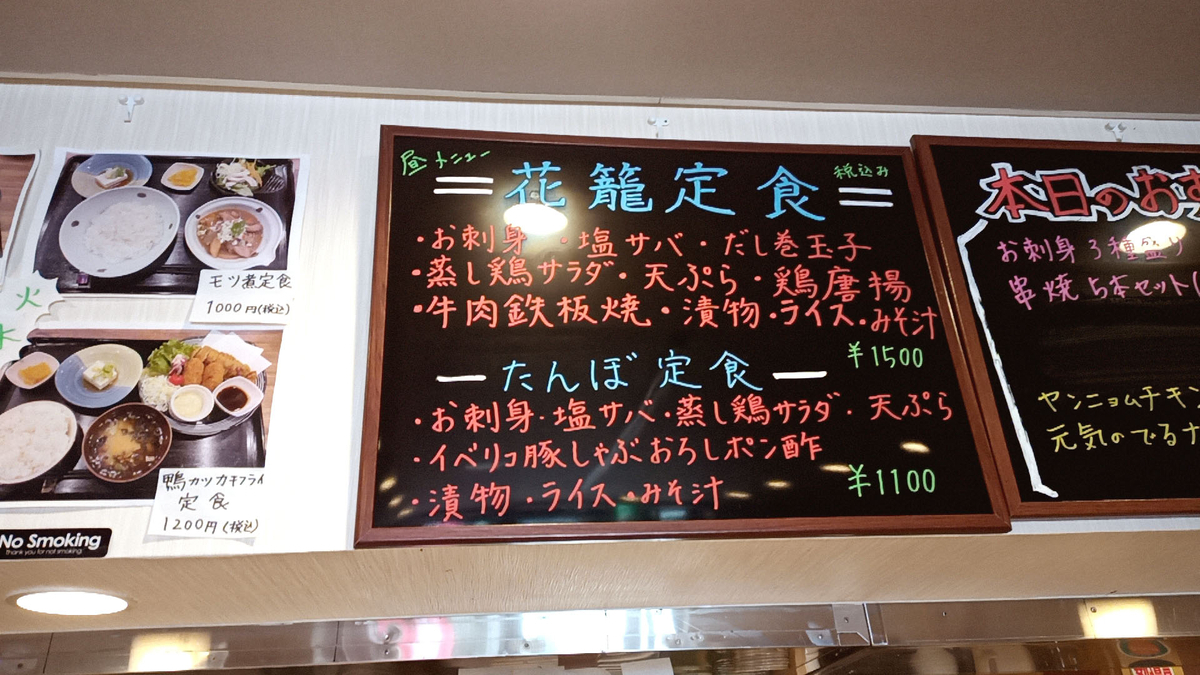 火
モツ煮定食
1000円(税込)
鴨カツカキフライ
定食
1200円(税込)
No Smoking
Thank you for not smoking.
昼メニュー
花籠定食
税込み
・お刺身・塩サバ・だし巻玉子
・蒸し鶏サラダ・天ぷら・鶏唐揚
・牛肉鉄板焼・漬物・ライス・みそ汁
¥1500
たんぽ定食
・お刺身・塩サバ・蒸し鶏サラダ・天ぷら
・イベリコ豚しゃぶおろしポン酢
・漬物・ライス・みそ汁
¥1100
本日のお
お刺身3種盛り
串焼5本セット
ヤンニョムチキン
元気のでる